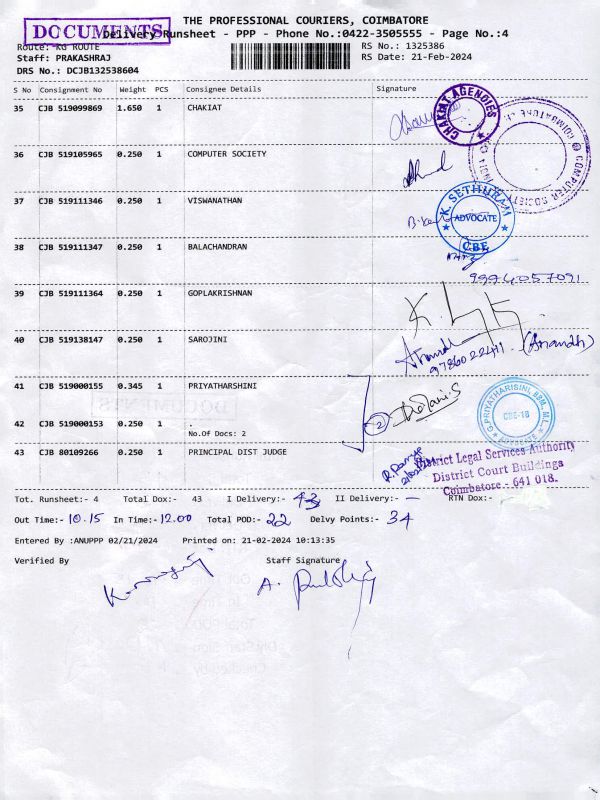 THE PROFESSIONAL COURIERS, COIMBATORE
DOCUMENTS
Delivery Runsheet - PPP - Phone No.:0422-3505555 - Page No.:4
Route: KG ROUTE RS No.: 1325386
Staff: PRAKASHRAJ RS Date: 21-Feb-2024
DRS No.: DCJB132538604
S No Consignment No Weight PCS Consignee Details Signature
35 CJB 519099869 1.650 1 CHAKIAT
CHAKIAT AGENCIES
36 CJB 519105965 0.250 1 COMPUTER SOCIETY
COMPUTER SOCIETY
37 CJB 519111346 0.250 1 VISWANATHAN
K. SETHURAM
ADVOCATE
CBE
38 CJB 519111347 0.250 1 BALACHANDRAN
9994057091
39 CJB 519111364 0.250 1 GOPLAKRISHNAN
40 CJB 519138147 0.250 1 SAROJINI
9786022411 (Anandh)
41 CJB 519000155 0.345 1 PRIYATHARSHINI
DOCUMENTS
G.PRIYATHARISINI, BBM, M.L.,
CBE-18
ADVOCATE
2
42 CJB 519000153 0.250 1 .
No.Of Docs: 2
43 CJB 80109266 0.250 1 PRINCIPAL DIST JUDGE
District Legal Services Authority
District Court Buildings
Coimbatore - 641 018.
Tot. Runsheet:- 4 Total Dox:- 43 I Delivery:- 43 II Delivery:- — RTN Dox:-
Out Time:- 10.15 In Time:- 12.00 Total POD:- 22 Delvy Points:- 34
Entered By :ANUPPP 02/21/2024 Printed on: 21-02-2024 10:13:35
Verified By Staff Signature